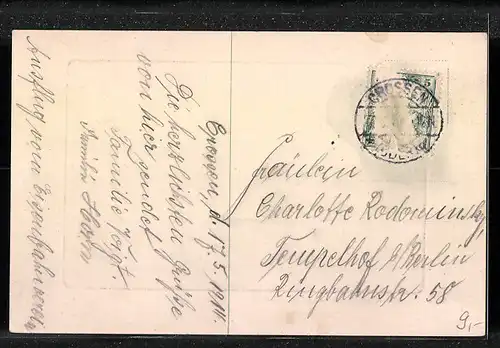 Crossen, d. 17.5.1914.
Die herzlichsten Grüße
von hier sendet
Familie Voigt.
Familie Horn
Ausflug vom Eisenbahnverein
5
CROSSEN
(ODER)
Fräulein
Charlotte Rodominsky
Tempelhof b/Berlin
Ringbahnstr. 58
9,-